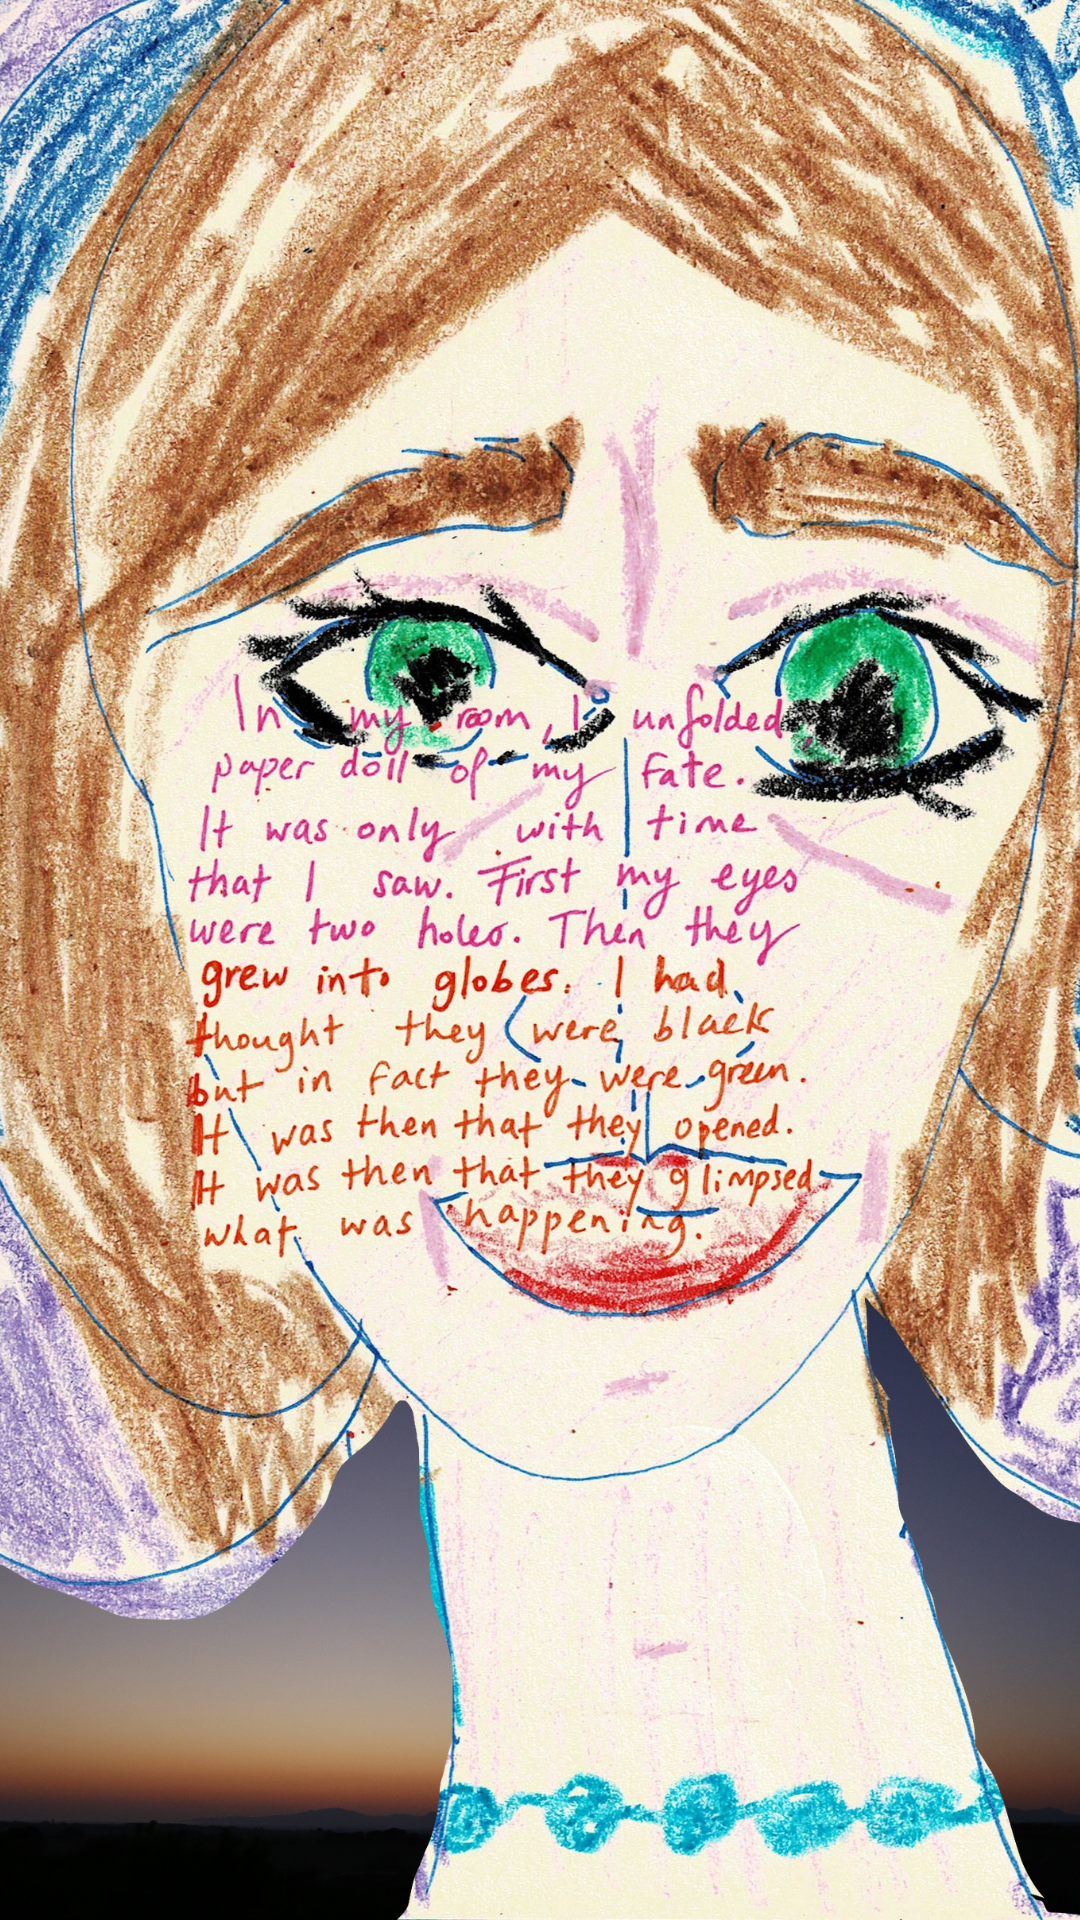 In my room, I unfolded
paper doll of my fate.
It was only with time
that I saw. First my eyes
were two holes. Then they
grew into globes. I had
thought they were black
but in fact they were green.
It was then that they opened.
It was then that they glimpsed
what was happening.